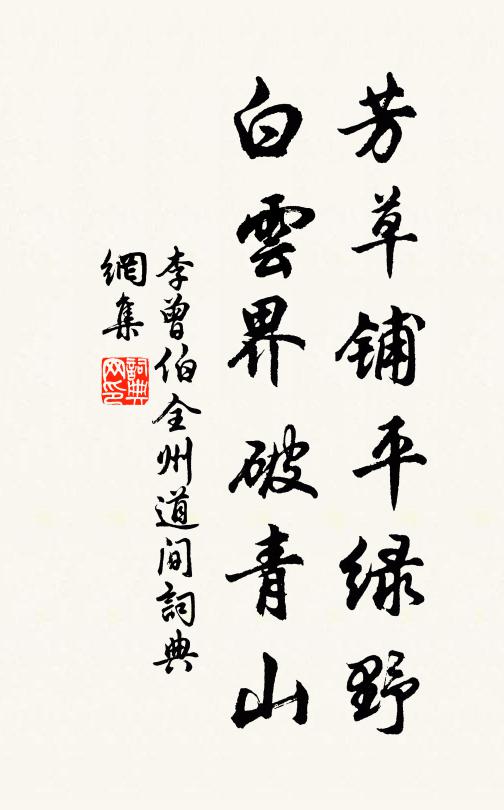 芳草铺平绿野
白雲界破青山
李曾伯全州道间詞典
網集
詞典網印